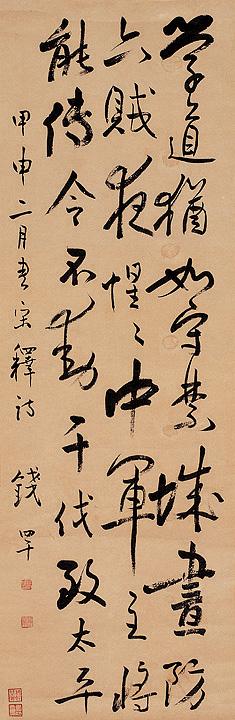 學道猶如守禁城晝防
六賊夜惺〻中軍主將
能傳令不動干伐致太平
甲申二月書宋釋詩 錢罕